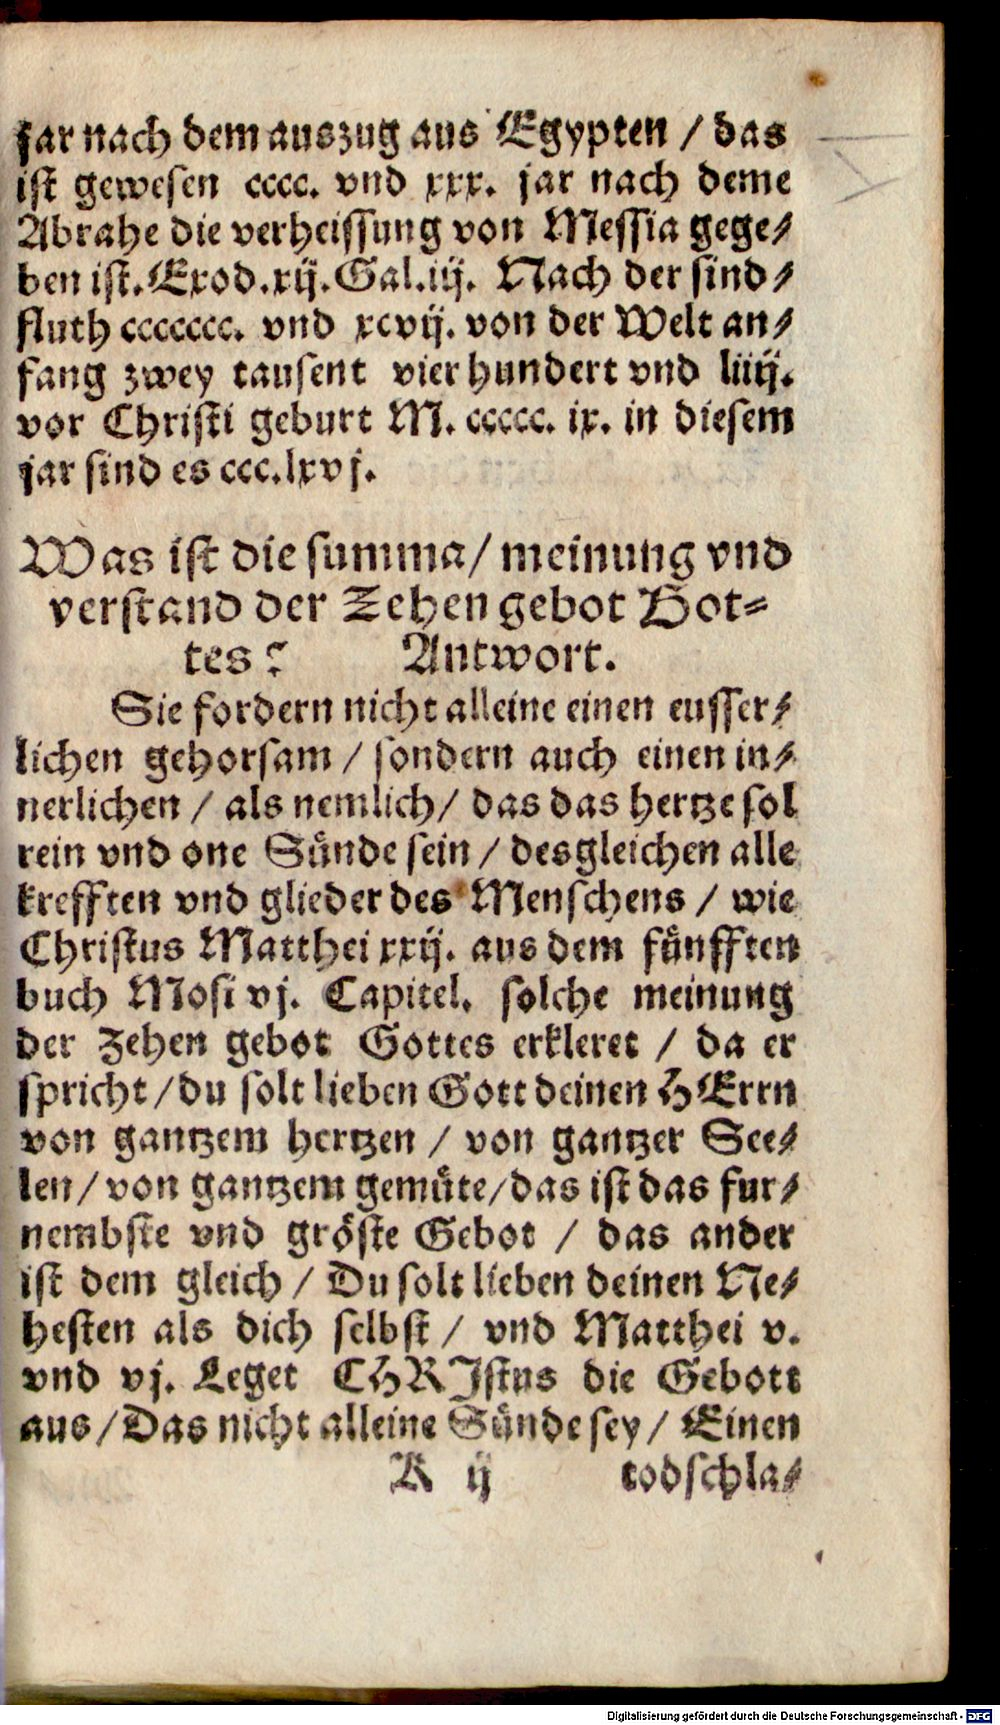 jar nach dem auszug aus Egypten / das
ist gewesen cccc. vnd xxx. jar nach deme
Abrahe die verheissung von Messia gege⸗
ben ist. Exod. xij. Gal. iij. Nach der sind⸗
fluth ccccccc. vnd xcvij. von der Welt an⸗
fang zwey tausent vier hundert vnd liiij.
vor Christi geburt M. ccccc. ix. in diesem
jar sind es ccc.lxvj.
Was ist die summa / meinung vnd
verstand der Zehen gebot Got⸗
tes? Antwort.
Sie fordern nicht alleine einen eusser⸗
lichen gehorsam / sondern auch einen in⸗
nerlichen / als nemlich / das das hertze sol
rein vnd one Sünde sein / desgleichen alle
krefften vnd glieder des Menschens / wie
Christus Matthei xxij. aus dem fünfften
buch Mosi vj. Capitel. solche meinung
der Zehen gebot Gottes erkleret / da er
spricht / du solt lieben Gott deinen HErrn
von gantzem hertzen / von gantzer See⸗
len / von gantzem gemüte / das ist das fur⸗
nembste vnd gröste Gebot / das ander
ist dem gleich / Du solt lieben deinen Ne⸗
hesten als dich selbst / vnd Matthei v.
vnd vj. Leget CHRIstus die Gebott
aus / Das nicht alleine Sünde sey / Einen
K ij todschla⸗
Digitalisierung gefördert durch die Deutsche Forschungsgemeinschaft - DFG